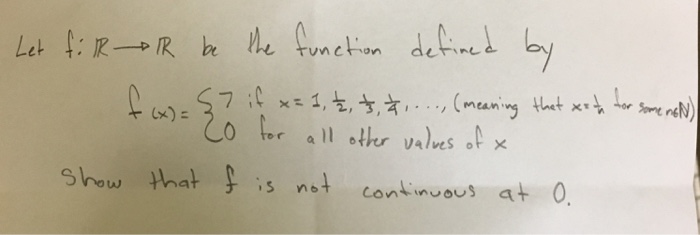 Let f: ℝ → ℝ be the function defined by
f(x) = { 7 if x = 1, 1/2, 1/3, 1/4, ..., (meaning that x = 1/n for some n∈N)
0 for all other values of x
Show that f is not continuous at 0.